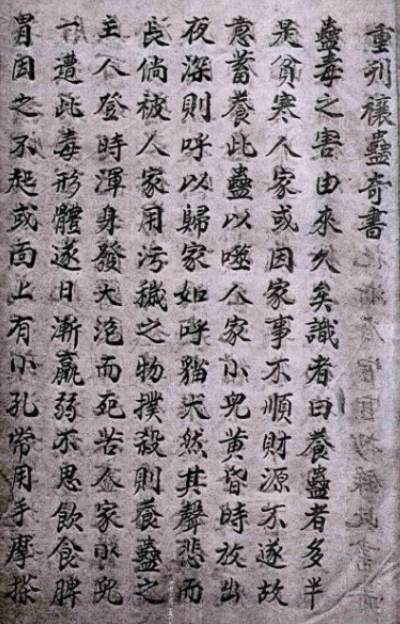 重刋禳蠱奇書
蠱毒之害由來久矣識者曰養蠱者多半
是貧寒人家或因家事不順財源不遂故
意蓄養此蠱以噬人家小兒黃昏時放出
夜深則呼以歸家如呼猫犬然其聲悲而
長倘被人家用污穢之物撲殺則養蠱之
主人登時渾身發大泡而死若人家小兒
一遭此毒形體遂日漸羸弱不思飲食脾
胃因之不起或面上有小孔常用手摩搽